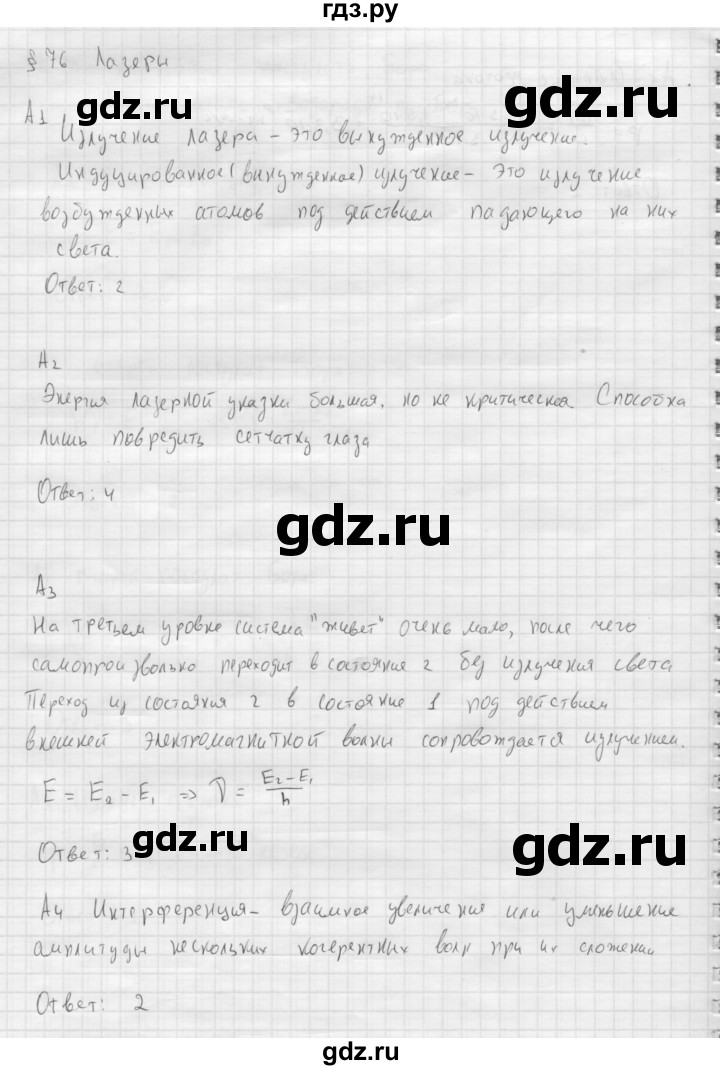 гдз.ру
§ 76 Лазеры
gdz.ru
gdz.ru
А1
Излучение лазера - это вынужденное излучение.
Индуцированное (вынужденное) излучение - это излучение
возбужденных атомов под действием падающего на них
света.
Ответ: 2
А2
Энергия лазерной указки большая, но не критическая. Способна
лишь повредить сетчатку глаза
Ответ: 4
gdz.ru
А3
На третьем уровне система "живет" очень мало, после чего
самопроизвольно переходит в состояние 2 без излучения света
Переход из состояния 2 в состояние 1 под действием
внешней электромагнитной волны сопровождается излучением.
E = E₂ - E₁ => ν = (E₂ - E₁)/h
gdz.ru
gdz.ru
Ответ: 3
А4 Интерференция - взаимное увеличение или уменьшение
амплитуды нескольких когерентных волн при их сложении
Ответ: 2
gdz.ru